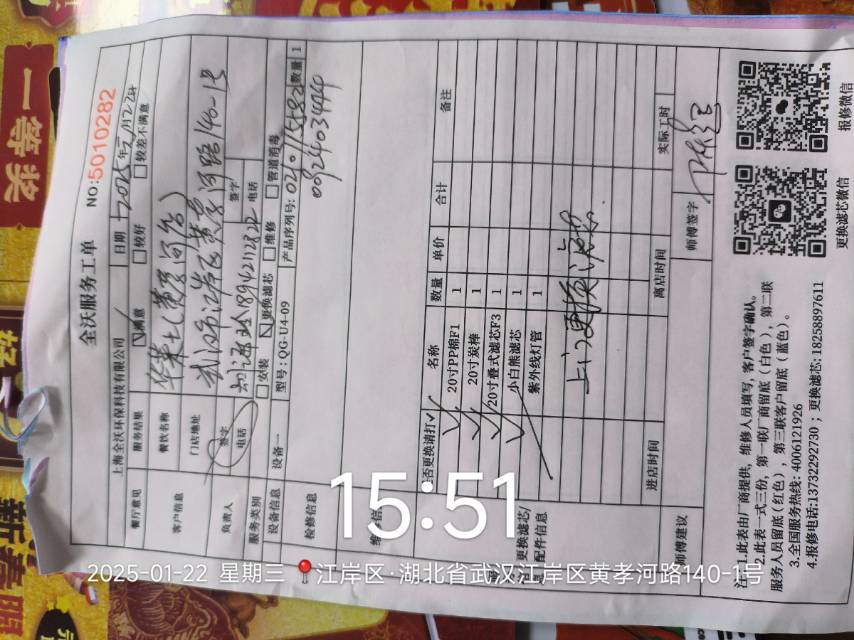 全沃服务工单
NO:5010282
上海全沃环保科技有限公司
日期
2025年
餐厅意见
服务结果
满意
较好
较差不满意
客户信息
餐饮名称
华莱士(黄孝河店)
门店地址
武汉市江岸区黄孝河路140-1号
负责人
签字
电话
18942112822
签字
电话
服务类别
安装
更换滤芯
维修
管道消毒
设备信息
设备一
型号:QG-U4-09
产品序列号:
数量 1
0824034444
检修信息
更换滤芯/
配件信息
名称
数量
单价
合计
备注
20寸PP棉F1
1
20寸炭棒
1
20寸叠式滤芯F3
1
小白熊滤芯
1
紫外线灯管
1
上门更换滤芯
进店时间
离店时间
实际工时
师傅建议
师傅签字
注:1.此表由厂商提供,维修人员填写,客户签字确认。
2.此表一式三份,第一联厂商留底(白色),第二联
服务人员留底(红色),第三联客户留底(蓝色)。
3.全国服务热线:4006121926
4.报修电话:13732292730;更换滤芯:18258897611
更换滤芯微信
报修微信
一等奖
15:51
2025-01-22 星期三 江岸区·湖北省武汉江岸区黄孝河路140-1号